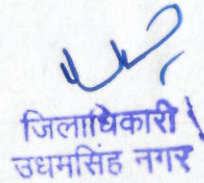 जिलाधिकारी
उधमसिंह नगर